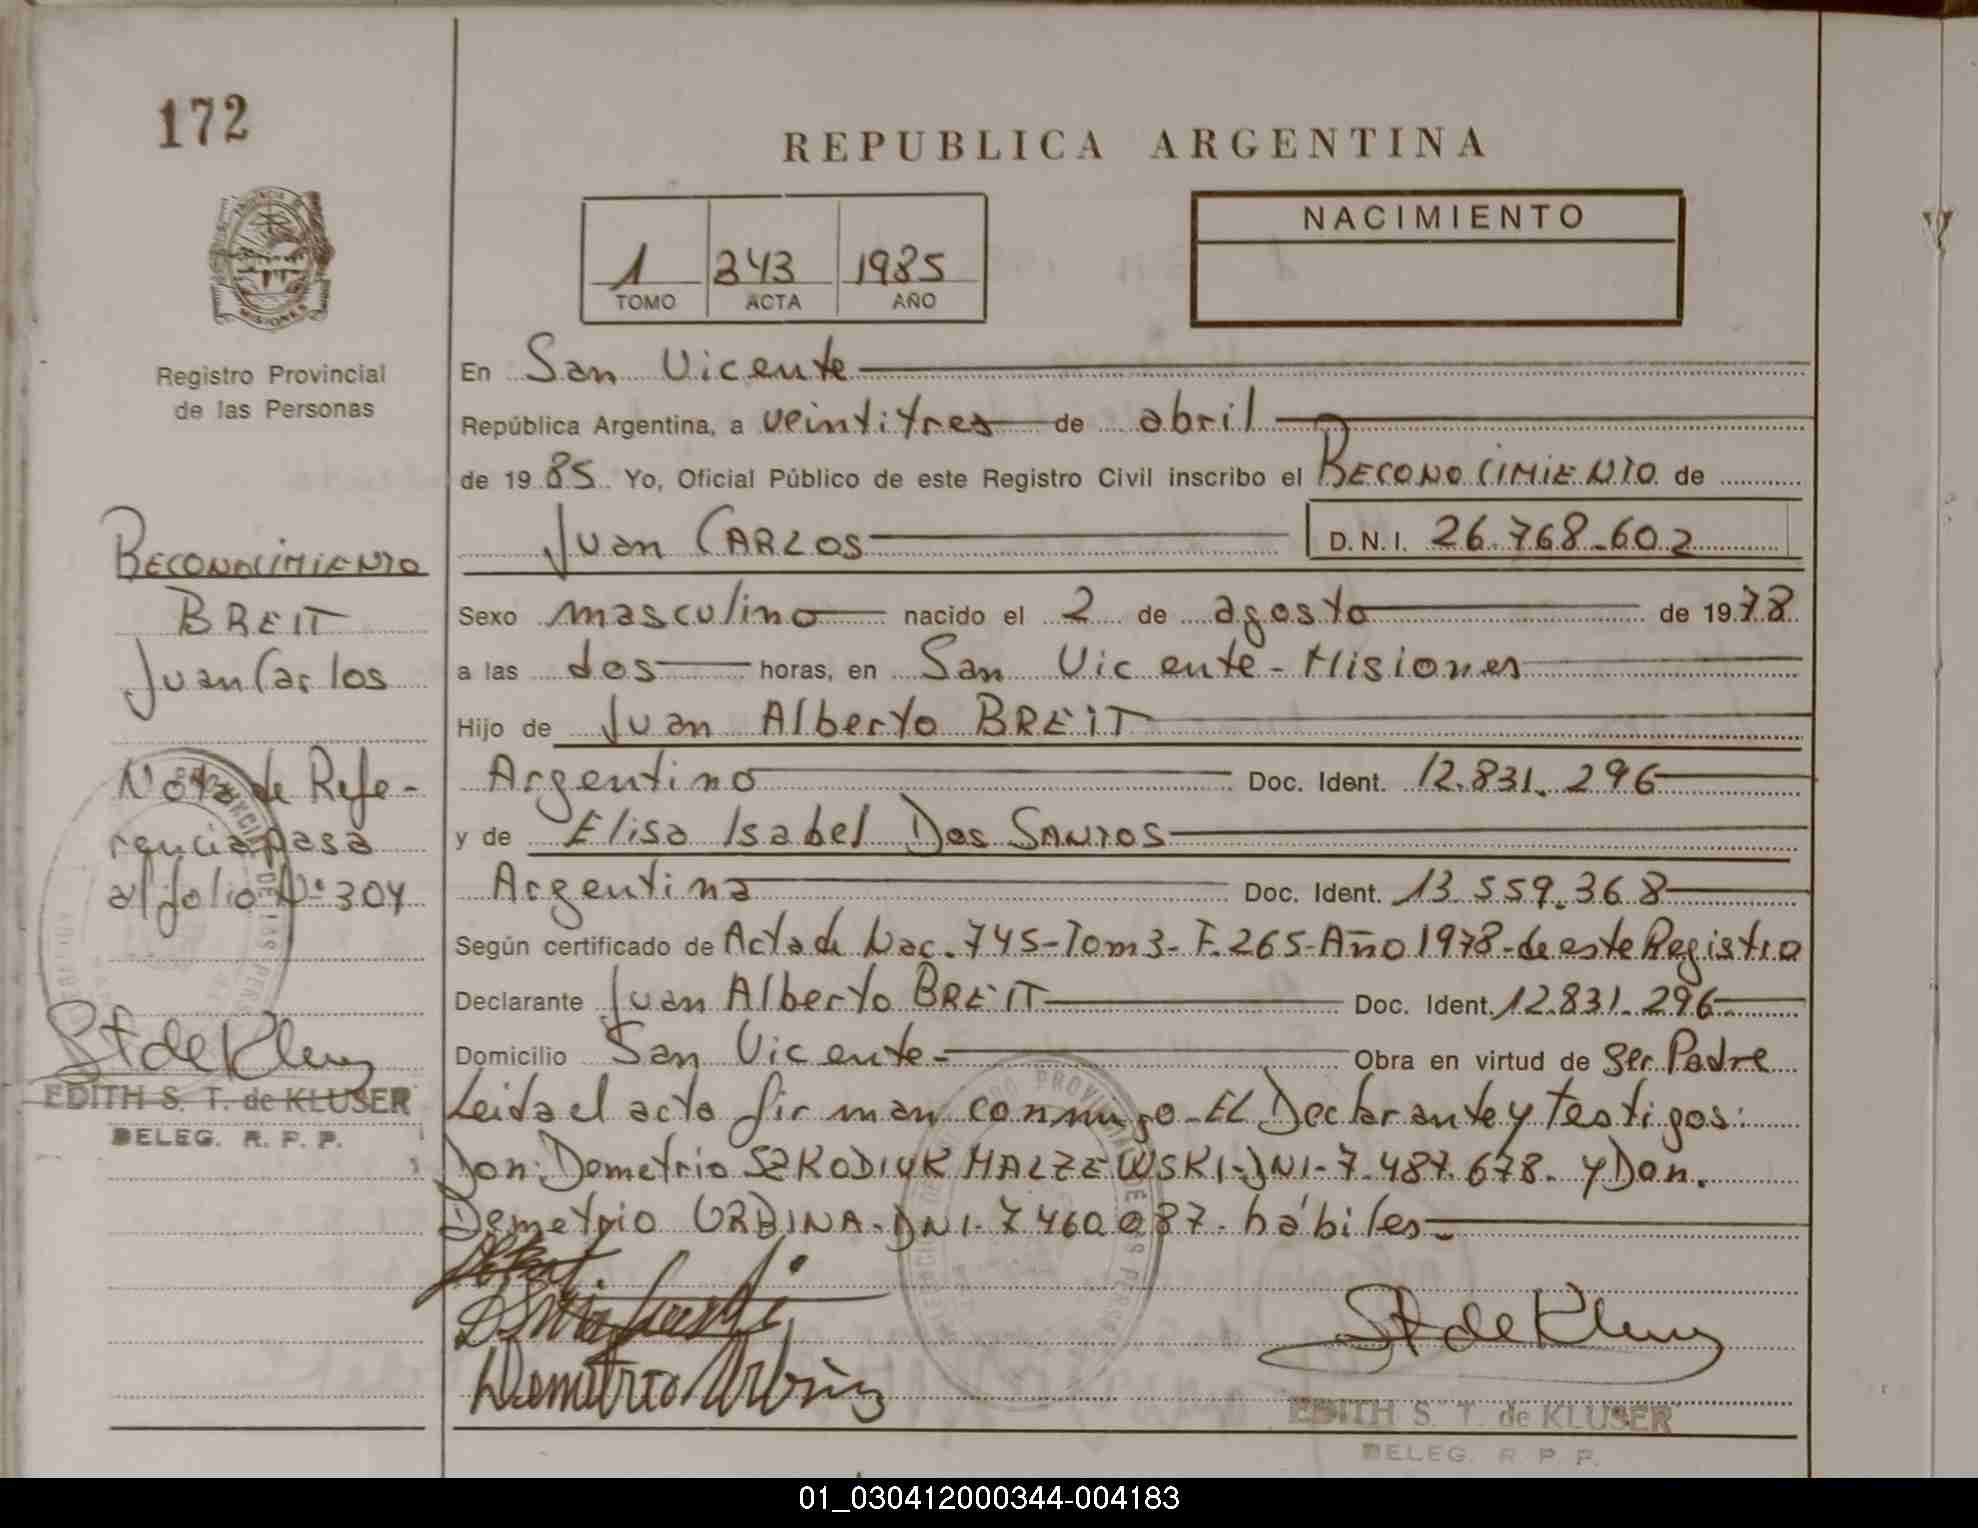 172
REPUBLICA ARGENTINA
PROVINCIA DE
MISIONES
NACIMIENTO
1 343 1985
TOMO ACTA AÑO
Registro Provincial
de las Personas
En San Vicente
República Argentina, a veintitres de abril
de 19 85 Yo, Oficial Público de este Registro Civil inscribo el RECONOCIMIENTO de
Juan CARLOS D.N.I. 26.768.602
Sexo masculino nacido el 2 de agosto de 19 78
a las dos horas, en San Vicente - Misiones
Hijo de Juan Alberto BREIT
Argentino Doc. Ident. 12.831.296
y de Elisa Isabel Dos SANTOS
Argentina Doc. Ident. 13.559.368
Según certificado de Acta de Nac. 745-Tom 3- F. 265-Año 1978-de este Registro
Declarante Juan Alberto BREIT Doc. Ident. 12.831.296
Domicilio San Vicente- Obra en virtud de Ser Padre
Leida el acta firman conmigo - EL Declarante y testigos:
Don: Demetrio SZKODIUK MALZEWSKI-DNI-7.487.678- y Don.
Demetrio URBINA-DNI-7.460.087- hábiles-
Demetrio Urbina
St de Kluser
EDITH S. T. de KLUSER
DELEG. R. P. P.
RECONOCIMIENTO
BREIT
Juan Carlos
Nota de Refe-
rencia pasa
al folio Nº 304
St de Kluser
EDITH S. T. de KLUSER
DELEG. R. P. P.
01_030412000344-004183